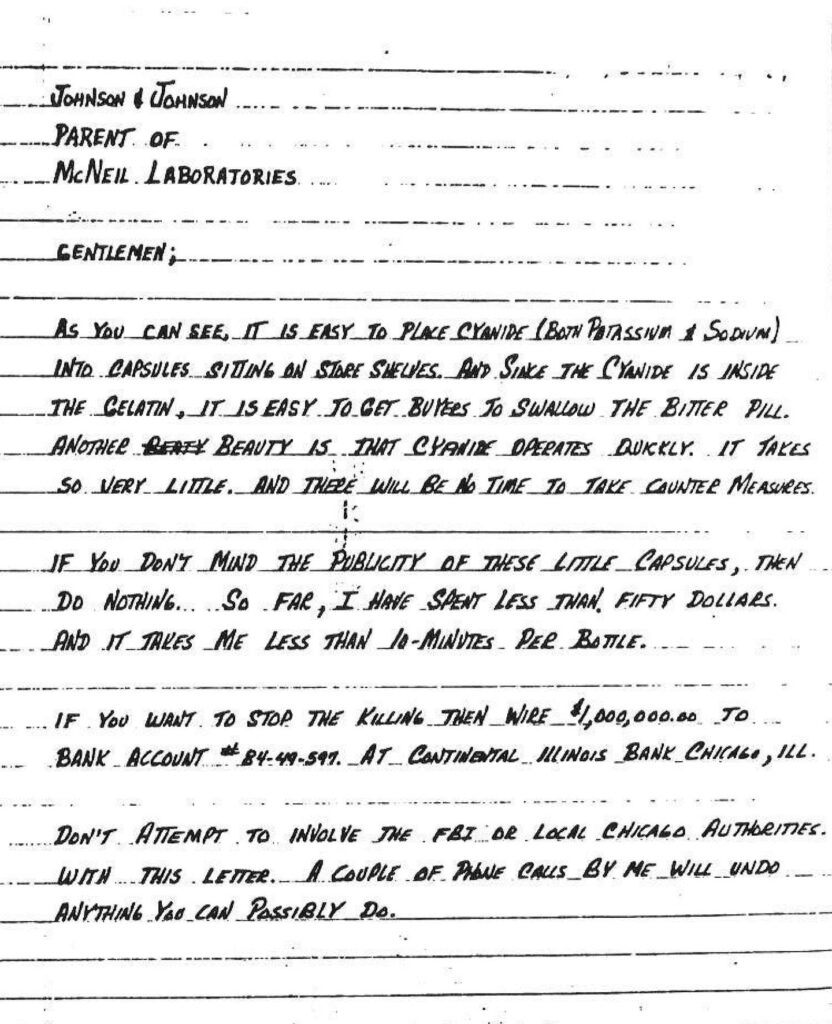 JOHNSON & JOHNSON
PARENT OF
MCNEIL LABORATORIES
GENTLEMEN;
AS YOU CAN SEE, IT IS EASY TO PLACE CYANIDE (BOTH POTASSIUM & SODIUM)
INTO CAPSULES SITTING ON STORE SHELVES. AND SINCE THE CYANIDE IS INSIDE
THE GELATIN, IT IS EASY TO GET BUYERS TO SWALLOW THE BITTER PILL.
ANOTHER BEATY BEAUTY IS THAT CYANIDE OPERATES QUICKLY. IT TAKES
SO VERY LITTLE. AND THERE WILL BE NO TIME TO TAKE COUNTER MEASURES.
IF YOU DON'T MIND THE PUBLICITY OF THESE LITTLE CAPSULES, THEN
DO NOTHING. SO FAR, I HAVE SPENT LESS THAN FIFTY DOLLARS.
AND IT TAKES ME LESS THAN 10-MINUTES PER BOTTLE.
IF YOU WANT TO STOP THE KILLING THEN WIRE $1,000,000.00 TO
BANK ACCOUNT # 84-49-597. AT CONTINENTAL ILLINOIS BANK CHICAGO, ILL.
DON'T ATTEMPT TO INVOLVE THE FBI OR LOCAL CHICAGO AUTHORITIES.
WITH THIS LETTER. A COUPLE OF PHONE CALLS BY ME WILL UNDO
ANYTHING YOU CAN POSSIBLY DO.